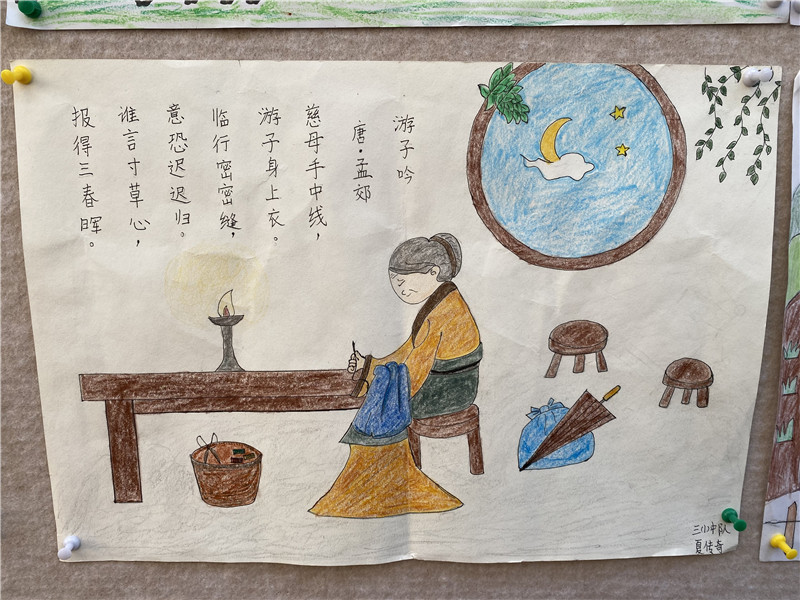 游子吟
唐·孟郊
慈母手中线，
游子身上衣。
临行密密缝，
意恐迟迟归。
谁言寸草心，
报得三春晖。
夏传奇